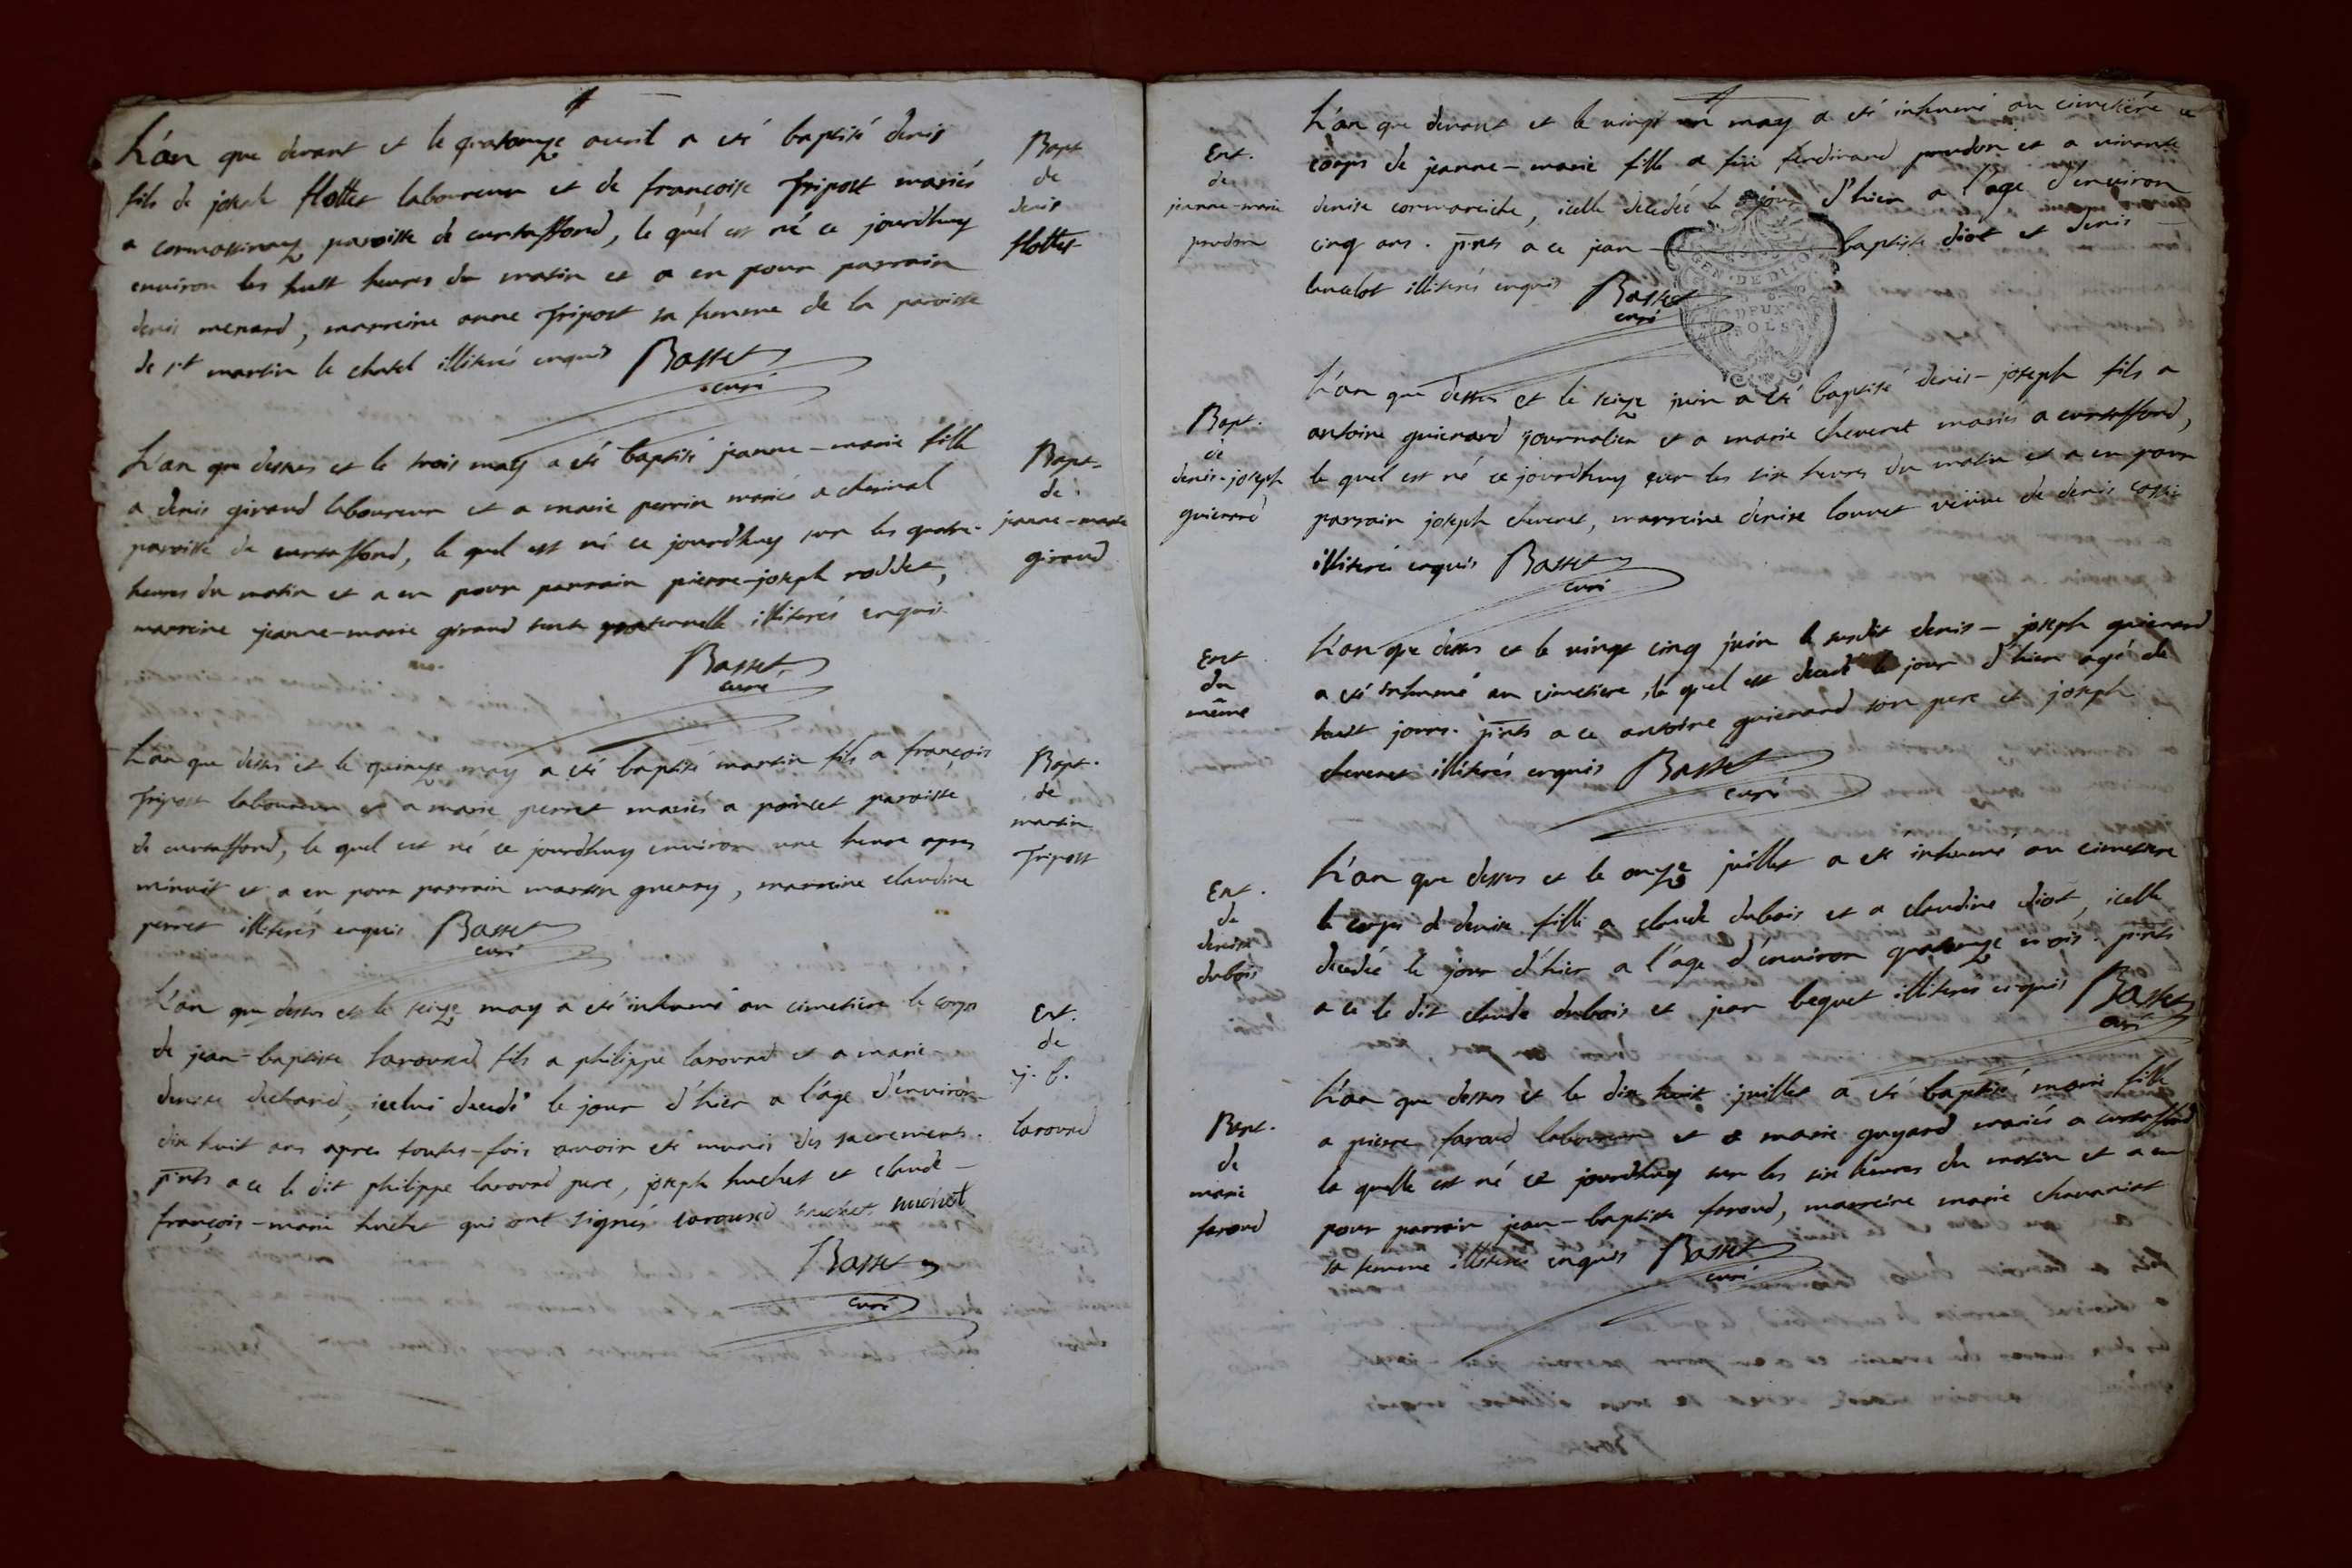 L'an que devant et le quatorze avril a eté baptisé denis
fils de joseph flottet laboureur et de françoise Fripost mariés
a cormossiney paroisse de curtaffond, le quel est né ce jourdhuy
environ les huit heures du matin et a eu pour parrain
denis menard, marreine anne Fripost sa femme de la paroisse
de st martin le chatel illiterés enquis Basset
curé
Bapt
de
denis
flottet
L'an que dessus et le trois may a eté baptisé jeanne-marie fille
a denis giraud laboureur et a marie perrin mariés a cherinal
paroisse de curtaffond, le quel est né ce jourdhuy sur les quatre
heures du matin et a eu pour parrain pierre-joseph roddet,
marreine jeanne-marie giraud tante paternelle illiterés enquis
Basset
curé
Bapt.
de
jeanne-marie
giraud
L'an que dessus et le quinze may a eté baptisé martin fils a françois
Fripost laboureur et a marie perret mariés a poincet paroisse
de curtaffond, le quel est né ce jourdhuy environ une heure apres
minuit et a eu pour parrain martin guerry, marreine claudine
perret illiterés enquis Basset
curé
Bapt.
de
martin
Fripost
L'an que dessus et le seize may a eté inhumé au cimetiere le corps
de jean-baptiste laround fils a philippe laround et a marie-
denise dechand, icelui decedé le jour d'hier a l'age d'environ
dix huit ans apres toutes-fois avoir eté munis des sacrements.
p̅nts a ce le dit philippe laround pere, joseph huchet et claude-
françois-marie huchet qui ont signés laround huchet huchet
Basset
curé
Ent.
de
j. b.
laround
L'an que devant et le vingt un may a eté inhumé au cimetiére le
corps de jeanne-marie fille a feu ferdinand prudon et a vivante
denise cormareiche, icelle decedée le jour d'hier a l'age d'environ
cinq ans. p̅nts a ce jean baptiste diot et denis
lancelot illiterés enquis Basset
curé
GEN. DE DIJON
DEUX
SOLS
Ent.
de
jeanne-marie
prudon
L'an que dessus et le seize juin a eté baptisé denis-joseph fils a
antoine guienard journalier et a marie cheveret mariés a curtaffond,
le quel est né ce jourdhuy sur les six heures du matin et a eu pour
parrain joseph cheveret, marreine denise louvet veüve de denis
illiterés enquis Basset
curé
Bapt.
de
denis-joseph
guienard
L'an que dessus et le vingt cinq juin le susdit denis-joseph guienard
a eté inhumé au cimetiere, le quel est decedé le jour d'hier agé de
huit jours. p̅nts a ce antoine guienard son pere et joseph
cheveret illiterés enquis Basset
curé
Ent
du
même
L'an que dessus et le onze juillet a eté inhumé au cimetiere
le corps de denise fille a claude dubois et a claudine diot, icelle
decedée le jour d'hier a l'age d'environ quatorze mois. p̅nts
a ce le dit claude dubois et jean bequet illiterés enquis Basset
curé
Ent.
de
denise
dubois
L'an que dessus et le dix huit juillet a eté baptisé marie fille
a pierre faroud laboureur et a marie guyard mariés a curtaffond
la quelle est né ce jourdhuy sur les six heures du matin et a eu
pour parrain jean-baptiste faroud, marreine marie chavariat
sa femme illiterés enquis Basset
curé
Bapt.
de
marie
faroud